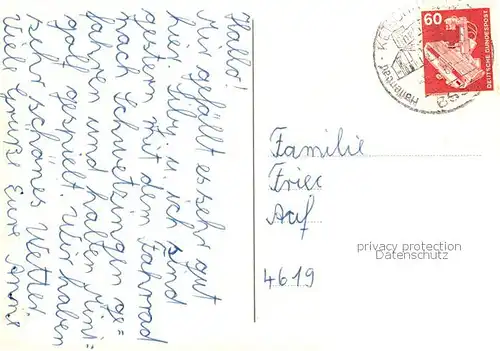 Hallo!
Mir gefällt es sehr gut
hier. Gaby u. ich sind
gestern mit dem Fahrrad
nach Schwetzingen ge=
fahren und haben Mini=
golf gespielt. Wir haben
sehr schönes Wetter.
Viele Grüße Eure Anne
60
DEUTSCHE BUNDESPOST
Hallenbad
Familie
Frie
Auf
privacy protection
Datenschutz
4619